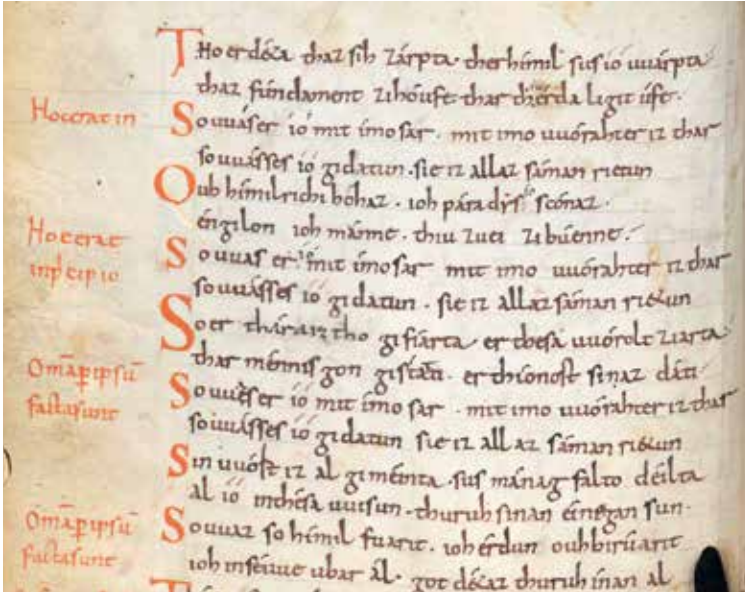 Tho er déta thaz sih zárpta· ther hímil sus ió uuárpta
thaz fúndament zi hóufe· thar thiérda ligit úfe·
Hoc erat in
So uuás er ió mit ímo sar· mit imo uuórahter iz thar
so uuásses ió gidatun· sie iz allaz sáman rietun
Ouh hímilrichi hóhaz· ioh páradys so scónaz·
éngilon ioh mánne· thiu zuei zi búenne·
Hoc erat
So uuas er io mit ímo sar mit imo uuórahter iz thar
inpͥcipio
so uuásses ió gidatun· sie iz allaz sáman rietun
So er thára iz tho gifíarta er thesa uuórolt ziarta
thar ménnisgon gistáti· er thíonost sinaz dáti·
Om̄a ꝑ ipsū
So uués er ió mit ímo sar· mit imo uuórahter iz thar
facta sunt
so uuásses ió gidatun sie iz allaz sáman rietun
Sin uuórt iz al giméinta sus mánagfalto déilta
al ió inthésa uuisun· thuruh sinan éinegan sun·
Om̄a ꝑ ipsū
So uuaz so hímil fuarit· ioh érdun ouh birúarit
facta sunt
ioh inséuue ubar ál· got détaz thuruh ínan al